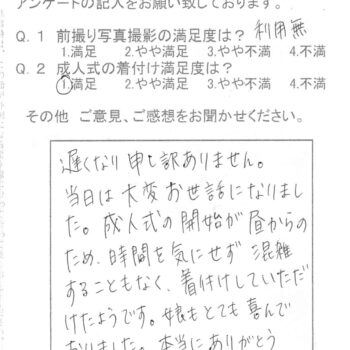 アンケートの記入をお願い致しております。
Q.1 前撮り写真撮影の満足度は? 利用無
1.満足 2.やや満足 3.やや不満 4.不満
Q.2 成人式の着付け満足度は?
1.満足 2.やや満足 3.やや不満 4.不満
その他 ご意見、ご感想をお聞かせください。
遅くなり申し訳ありません。
当日は大変お世話になりまし
た。成人式の開始が昼からの
ため、時間を気にせず 混雑
することもなく、着付けしていただ
けたようです。娘もとても喜んで
おりました。本当にありがとう